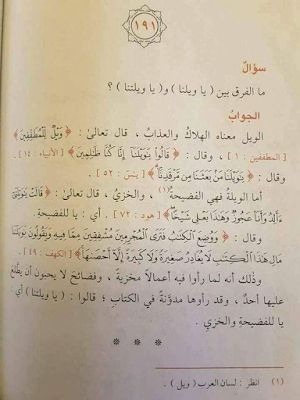 ١٩١
سؤال
ما الفرق بين ( يا ويلنا ) و( يا ويلتنا ) ؟
الجواب
الويل معناه الهلاك والعذاب ، قال تعالى : ﴿ وَيْلٌ لِّلْمُطَفِّفِينَ ﴾
[المطففين : ١] ، وقال : ﴿ قَالُوا يَوَيْلَنَا إِنَّا كُنَّا ظَلِمِينَ ﴾ [الأنبياء : ١٤] .
وقال : ﴿ يَوَيْلَنَا مَنْ بَعَثَنَا مِن مَّرْقَدِنَا ﴾ [يس : ٥٢] .
أما الويلة فهي الفضيحة(١) ، والخزي ، قال تعالى : ﴿ قَالَتْ يَوَيْلَتَى
ءَأَلِدُ وَأَنَا عَجُوزٌ وَهَذَا بَعْلِي شَيْخًا ﴾ [هود : ٧٢] . أي : يا للفضيحة .
وقال : ﴿ وَوُضِعَ الْكِتَبُ فَتَرَى الْمُجْرِمِينَ مُشْفِقِينَ مِمَّا فِيهِ وَيَقُولُونَ يَوَيْلَتَنَا
مَالِ هَذَا الْكِتَبِ لَا يُغَادِرُ صَغِيرَةً وَلَا كَبِيرَةً إِلَّا أَحْصَنَهَا ﴾ [الكهف : ٤٩] .
وذلك أنه لما رأوا فيه أعمالاً مخزية ، وفضائح لا يحبون أن يطّلع
عليها أحدٌ ، وقد رأوها مدوّنة في الكتاب ؛ قالوا : ( يا ويلتنا ) أي :
يا للفضيحة والخزي .
* * *
(١) انظر : لسان العرب ( ويل ) .